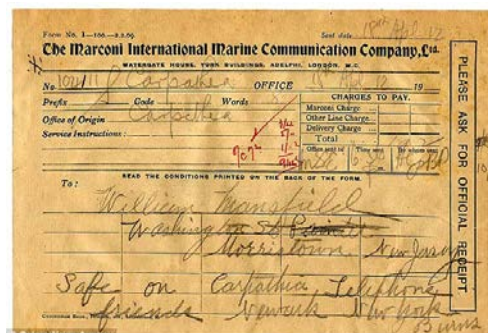 Form No. 1—100.—2.2.09.
Sent date 18th Apl 12
The Marconi International Marine Communication Company, Ltd.
WATERGATE HOUSE, YORK BUILDINGS, ADELPHI, LONDON, W.C.
No. OFFICE 19
Carpathia
Prefix Code Words
CHARGES TO PAY.
Marconi Charge
Office of Origin Carpathia
Other Line Charge
Delivery Charge
Service Instructions:
Total
Office sent to Time sent By whom sent
READ THE CONDITIONS PRINTED ON THE BACK OF THE FORM.
To:
William Mansfield
Washington St
Morristown New Jersey
Safe on Carpathia Telephone
friends Newark New York
Burns
PLEASE ASK FOR OFFICIAL RECEIPT